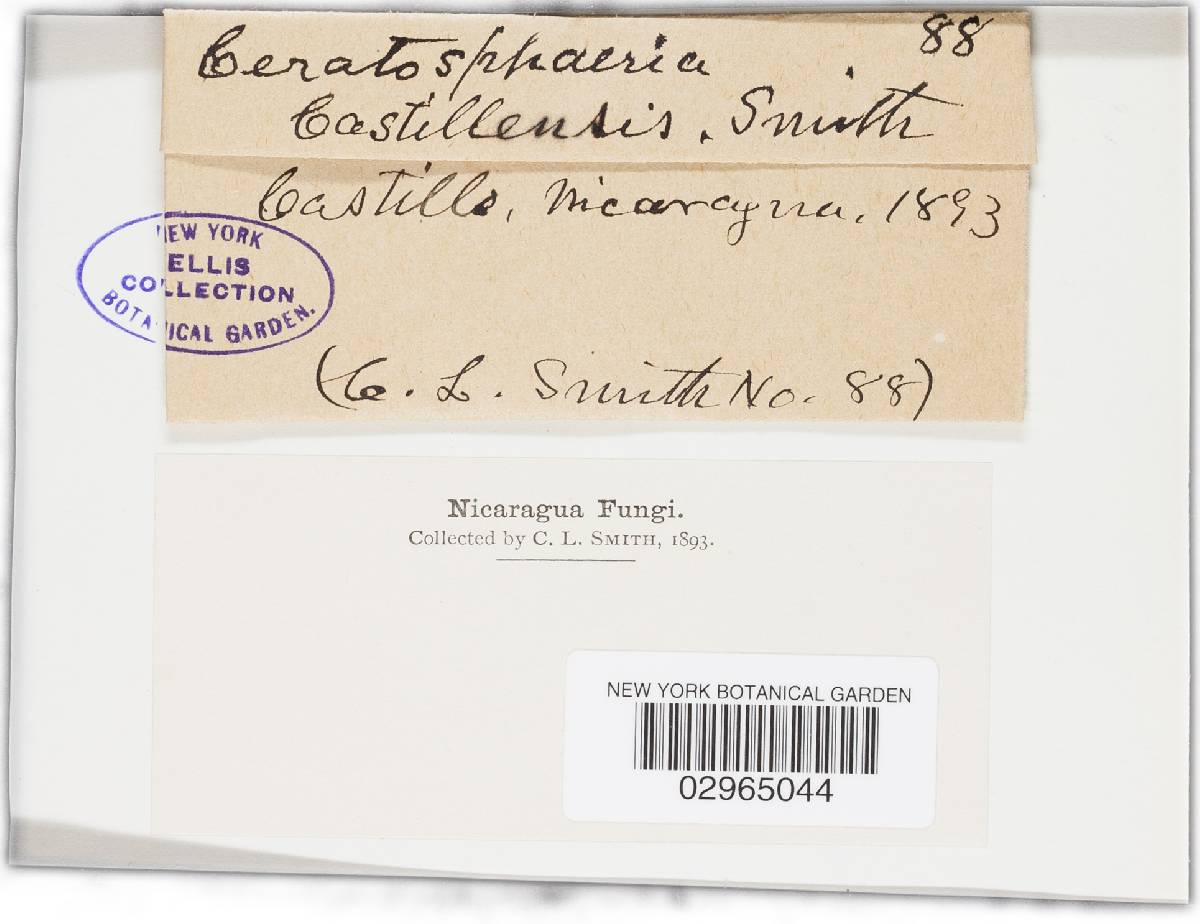 88
Ceratosphaeria
Castillensis. Smith
Castillo, Nicaragua, 1893
NEW YORK
ELLIS
COLLECTION
BOTANICAL GARDEN.
(C. L. Smith No. 88)
Nicaragua Fungi.
Collected by C. L. SMITH, 1893.
NEW YORK BOTANICAL GARDEN
02965044